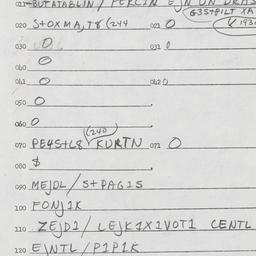 011 BUTATABLIN / PERCIN EJN UN DRAS
G3S+PILT XA
020 S+OXMA,T8 (244 021 O V 193
030 O 031 O
040 O
041 O 042 O
050 O
060 O
(240
070 PE4S+L8 KURTN 071 O
080 $
090 MEJDL / S+PAG1S
100 FONJ1K
110 ZEJD1 / LEJK1X1VOT1 CENTL
120 EJNTL / P1P1K